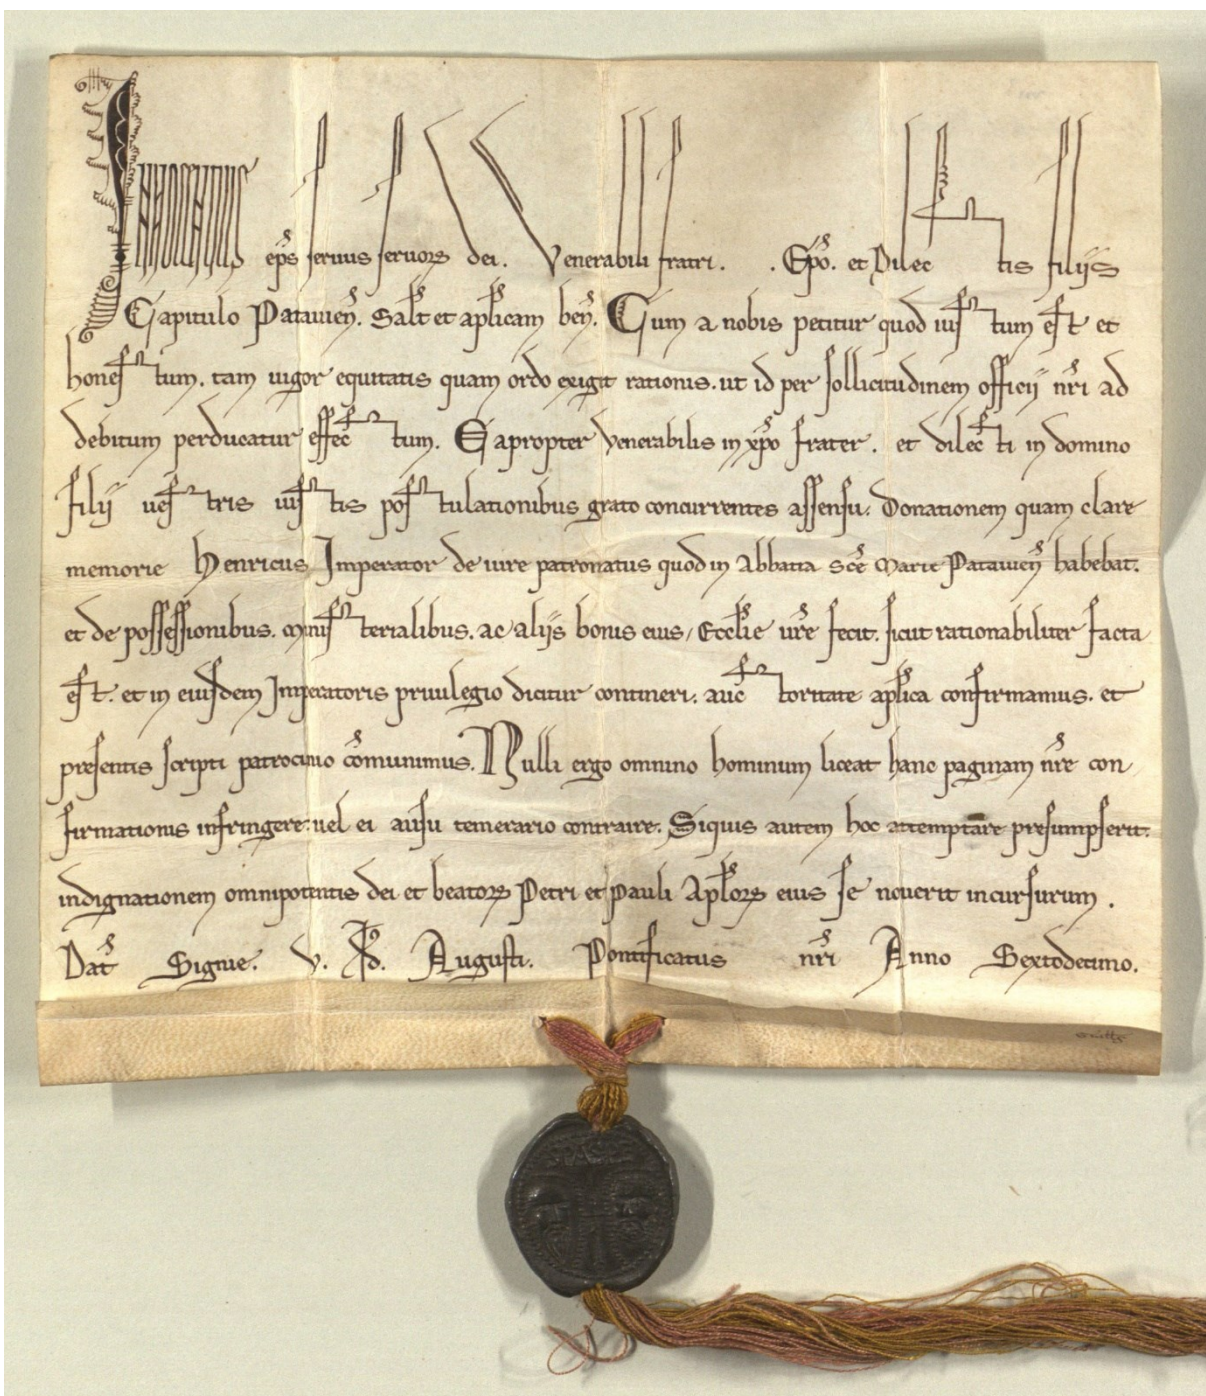 Innocentius ep̄s seruus seruoꝝ dei. Venerabili fratri. . Ep̄o. et Dilectis filijs
Capitulo Patauieñ. Saƚt et apƚicam beñ. Cum a nobis petitur quod iustum est et
honestum. tam uigor equitatis quam ordo exigit rationis. ut id per sollicitudinem officij nr̄i ad
debitum perducatur effectum. Eapropter venerabilis in xp̄o frater. et dilecti in domino
filij uestris iustis postulationibus grato concurrentes assensu. Donationem quam clare
memorie Henricus Imperator de iure patronatus quod in Abbatia Sc̄e Marie Patauieñ habebat.
et de possessionibus. ministerialibus. ac alijs bonis eius, Eccƚie ur̄e fecit. sicut rationabiliter facta
est. et in eiusdem Imperatoris priuilegio dicitur contineri. auctoritate apƚica confirmamus. et
presentis scripti patrocinio cōmunimus. Nulli ergo omnino hominum liceat hanc paginam nr̄e con
firmationis infringere. uel ei ausu temerario contraire. Siquis autem hoc attemptare presumpserit.
indignationem omnipotentis dei et beatoꝝ Petri et Pauli Apƚoꝝ eius se nouerit incursurum.
Dat̄ Signie. v. kƚ. Augusti. Pontificatus nr̄i Anno Sextodecimo.
SPASPE